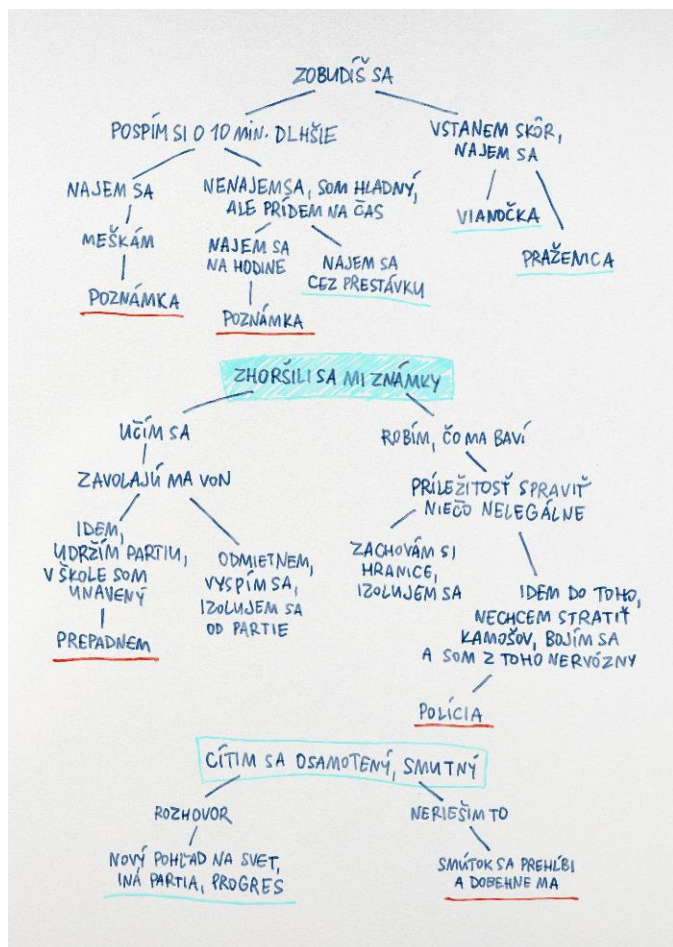 ZOBUDÍŠ SA
POSPÍM SI O 10 MIN. DLHŠIE
VSTANEM SKÔR,
NAJEM SA
NAJEM SA
NENAJEM SA, SOM HLADNÝ,
ALE PRÍDEM NA ČAS
VIANOČKA
PRAŽENICA
MEŠKÁM
NAJEM SA
NA HODINE
NAJEM SA
CEZ PŘESTÁVKU
POZNÁMKA
POZNÁMKA
ZHORŠILI SA MI ZNÁMKY
UČÍM SA
ROBÍM, ČO MA BAVÍ
ZAVOLAJÚ MA VON
PRÍLEŽITOSŤ SPRAVIŤ
NIEČO NELEGÁLNE
IDEM,
UDRŽÍM PARTIU,
V ŠKOLE SOM
UNAVENÝ
ODMIETNEM,
VYSPÍM SA,
IZOLUJEM SA
OD PARTIE
ZACHOVÁM SI
HRANICE,
IZOLUJEM SA
IDEM DO TOHO,
NECHCEM STRATIŤ
KAMOŠOV, BOJÍM SA
A SOM Z TOHO NERVÓZNY
PREPADNEM
POLÍCIA
CÍTIM SA OSAMOTENÝ, SMUTNÝ
ROZHOVOR
NERIEŠIM TO
NOVÝ POHĽAD NA SVET,
INÁ PARTIA, PROGRES
SMÚTOK SA PREHĹBI
A DOBEHNE MA